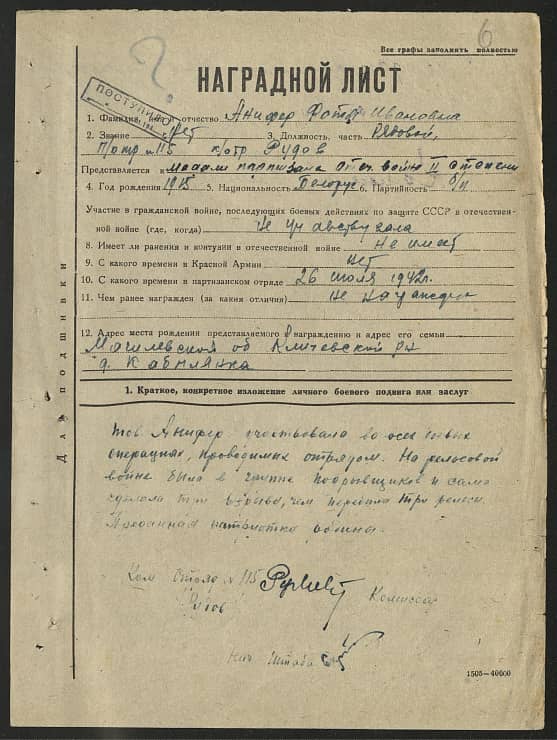 6
Все графы заполнить полностью
НАГРАДНОЙ ЛИСТ
ПОСТУПИЛО
1. Фамилия, имя и отчество Анифер Ивановна
2. Звание нет 3. Должность, часть Рядовой,
п/отр №115 к/отр Рудов
Представляется к медали партизана отеч. войны II степени
4. Год рождения 1915 5. Национальность Белорус 6. Партийность б/п
Участие в гражданской войне, последующих боевых действиях по защите СССР в отечествен-
ной войне (где, когда) не участвовала
8. Имеет ли ранения и контузии в отечественной войне не имеет
9. С какого времени в Красной Армии нет
10. С какого времени в партизанском отряде 26 июля 1942г.
11. Чем ранее награжден (за какия отличия) не
12. Адрес места рождения представляемого к награждению и адрес его семьи
Магилевской об Кличевской рн
д. Кабылянка
Для подшивки
1. Краткое, конкретное изложение личного боевого подвига или заслуг
тов Анифер участвовала во всех боевых
операциях, проводимых отрядом. На рельсовой
войне была в группе подрывщиков и сама
сделала три взрыва, чем перебила три рельсы.
Преданная патриотка родины.
Ком отряд №115 Комиссар
Рудов
Нач штаба
1505—40000